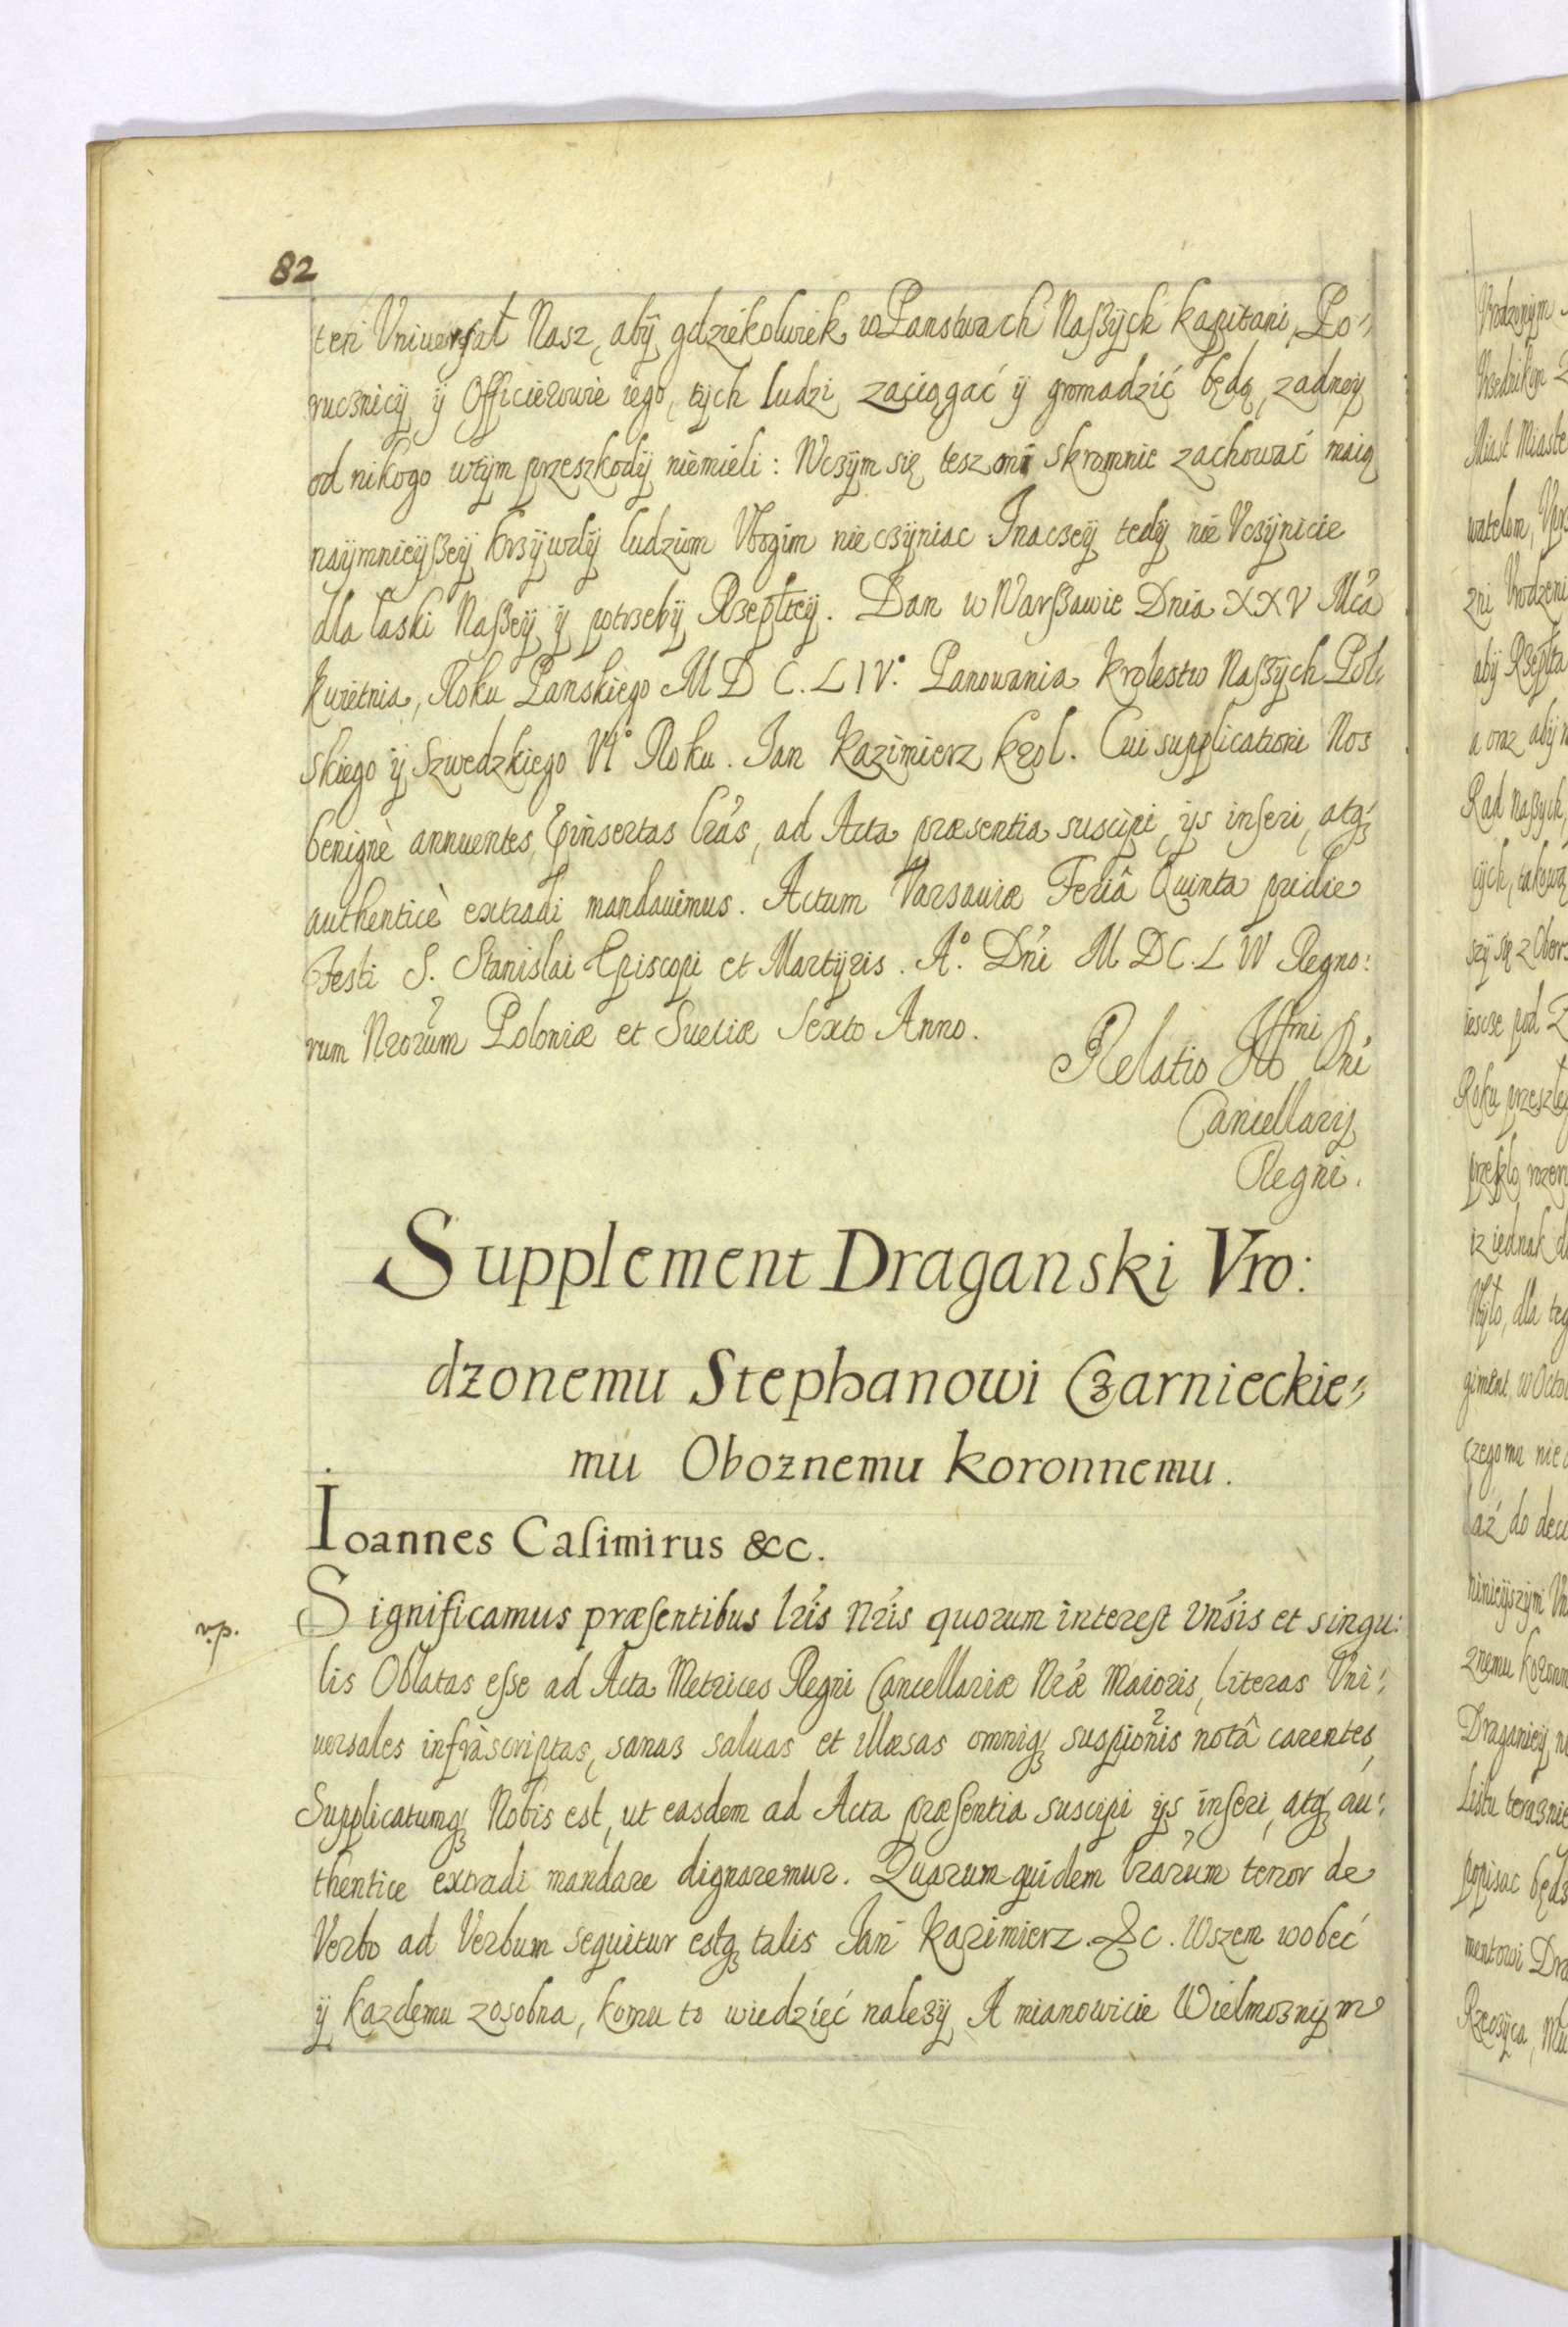 82
ten Vniuersał Nasz, aby gdziekolwiek w Panstwach Naßych kapitani, Po=
rucznicy y Officierowie iego, tych ludzi zaciągać y gromadzić będą, zadney
od nikogo wtym przeszkody niemieli: Wczym się tesz oni skromnie zachować maią
naymnieyßey krzywdy ludziom Vbogim nie czyniac Inaczey tedy nie Vczynicie
dla łaski Naßey y potrzeby Rzepltey. Dan w Warßawie Dnia XXV Mca
kwietnia, Roku Panskiego M D C. L IV.° Panowania krolestw Naßych Pol:
skiego y Szwedzkiego VI° Roku. Jan Kazimierz krol. Cui supplicationi Nos
benignè annuentes, pinsertas lras, ad Acta præsentia suscipi, ijs inseri, atq;
authenticè extradi mandauimus. Actum Varsauiæ Feriâ Quinta pridie
Festi S. Stanislai Episcopi et Martyris. A.° Dni M DC. L IV Regno:
rum Nrorum Poloniæ et Sueciæ Sexto Anno.
Relatio Illmi Dni
Cancellarij
Regni.
Supplement Draganski Vro:
dzonemu Stephanowi Czarnieckie=
mu Oboznemu koronnemu.
Ioannes Casimirus &c.
v.p.
Significamus præsentibus lris Nris quorum interest vnsis et singu:
lis Oblatas esse ad Acta Metrices Regni Cancellariæ Nræ Maioris, literas Vni:
uersales infràscriptas, sanas saluas et illæsas omniq; suspionis notâ carentes,
Supplicatumq; Nobis est, ut easdem ad Acta præsentia suscipi ijs inseri, atq; au:
thentice extradi mandare dignaremur. Quarum quidem lrarum tenor de
Verbo ad Verbum sequitur estq; talis Jan Kazimierz &c. Wszem wobeć
y kazdemu zosobna, komu to wiedzieć nalezy A mianowicie Wielmoznym